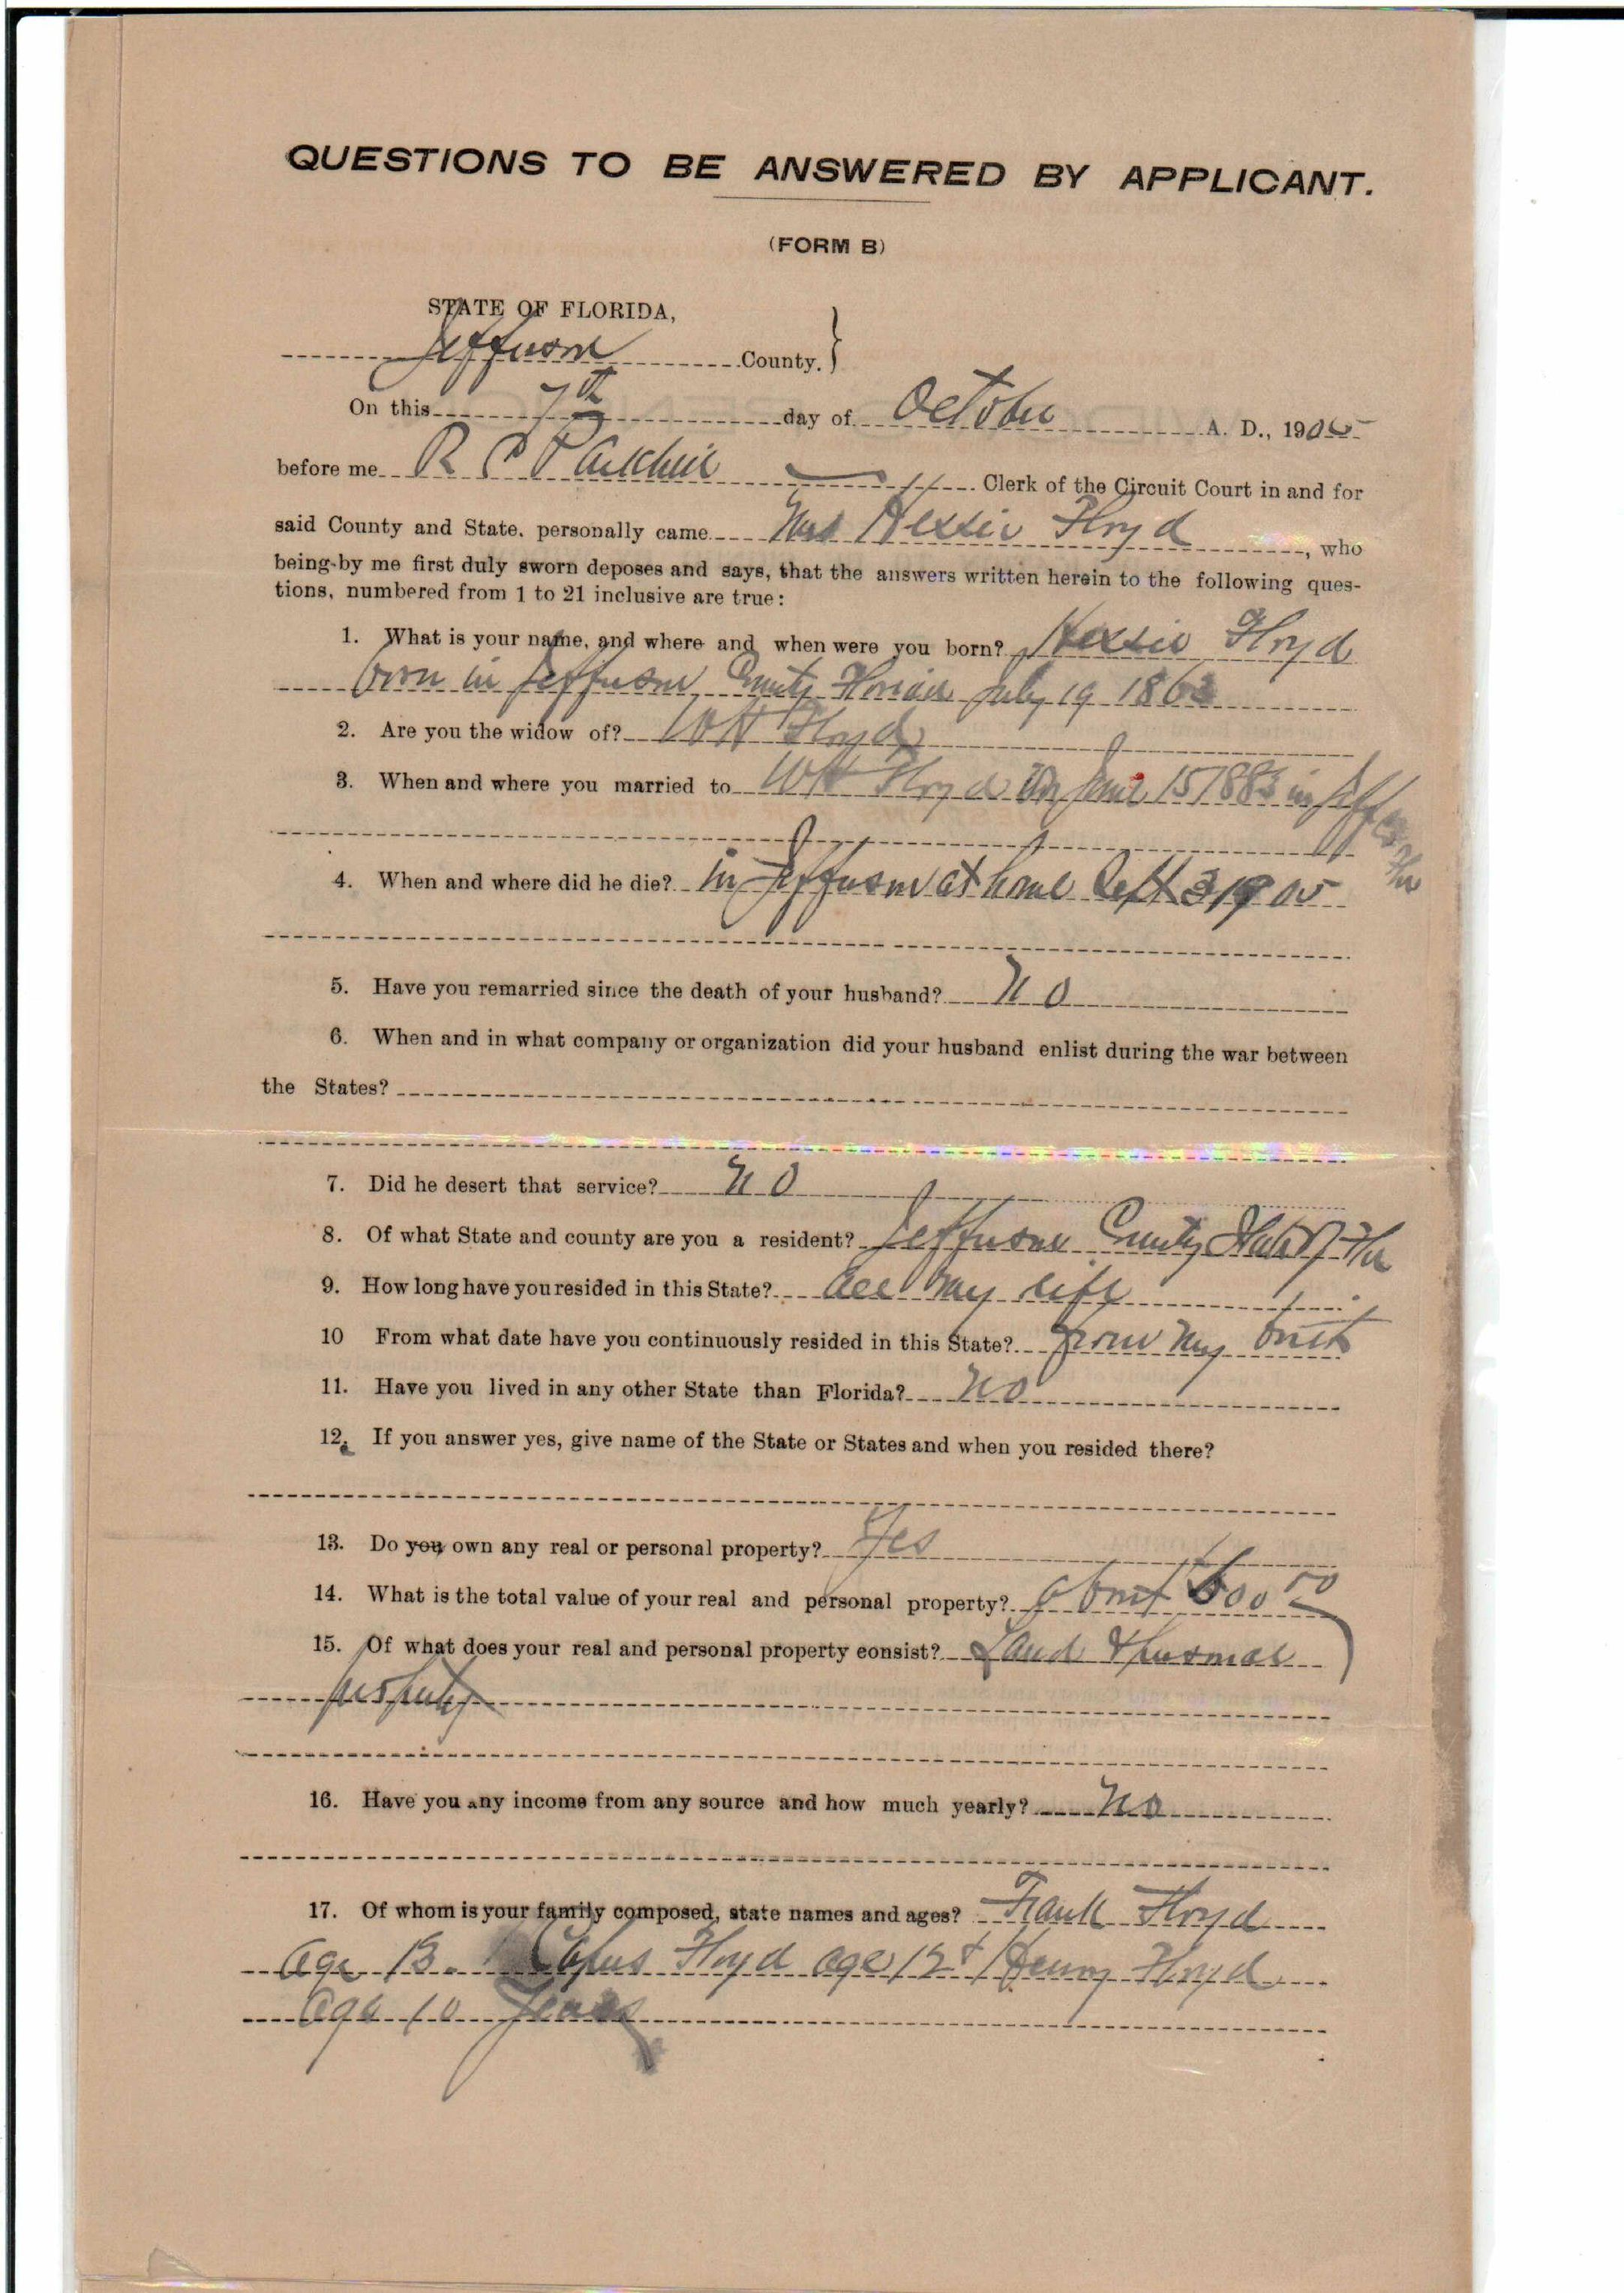 QUESTIONS TO BE ANSWERED BY APPLICANT.
(FORM B)
STATE OF FLORIDA,
Jefferson County.
On this 7th day of October A. D., 1905
before me R C Clerk of the Circuit Court in and for
said County and State. personally came Mrs Floyd, who
being by me first duly sworn deposes and says, that the answers written herein to the following ques-
tions, numbered from 1 to 21 inclusive are true:
1. What is your name, and where and when were you born? Floyd
born in Jefferson County Florida July 19 1863
2. Are you the widow of? W H Floyd
3. When and where you married to W H Floyd on 15 1883 in Jefferson Fla
4. When and where did he die? in Jefferson at home Sept 3 1905
5. Have you remarried since the death of your husband? No
6. When and in what company or organization did your husband enlist during the war between
the States?
7. Did he desert that service? No
8. Of what State and county are you a resident? Jefferson County State of Fla
9. How long have you resided in this State? all my life
10 From what date have you continuously resided in this State? from my birth
11. Have you lived in any other State than Florida? No
12. If you answer yes, give name of the State or States and when you resided there?
13. Do you own any real or personal property? Yes
14. What is the total value of your real and personal property? about
15. Of what does your real and personal property consist? Land & personal
property
16. Have you any income from any source and how much yearly? No
17. Of whom is your family composed, state names and ages? Frank Floyd
age 13. Floyd age 12 & Henry Floyd
age 10 years